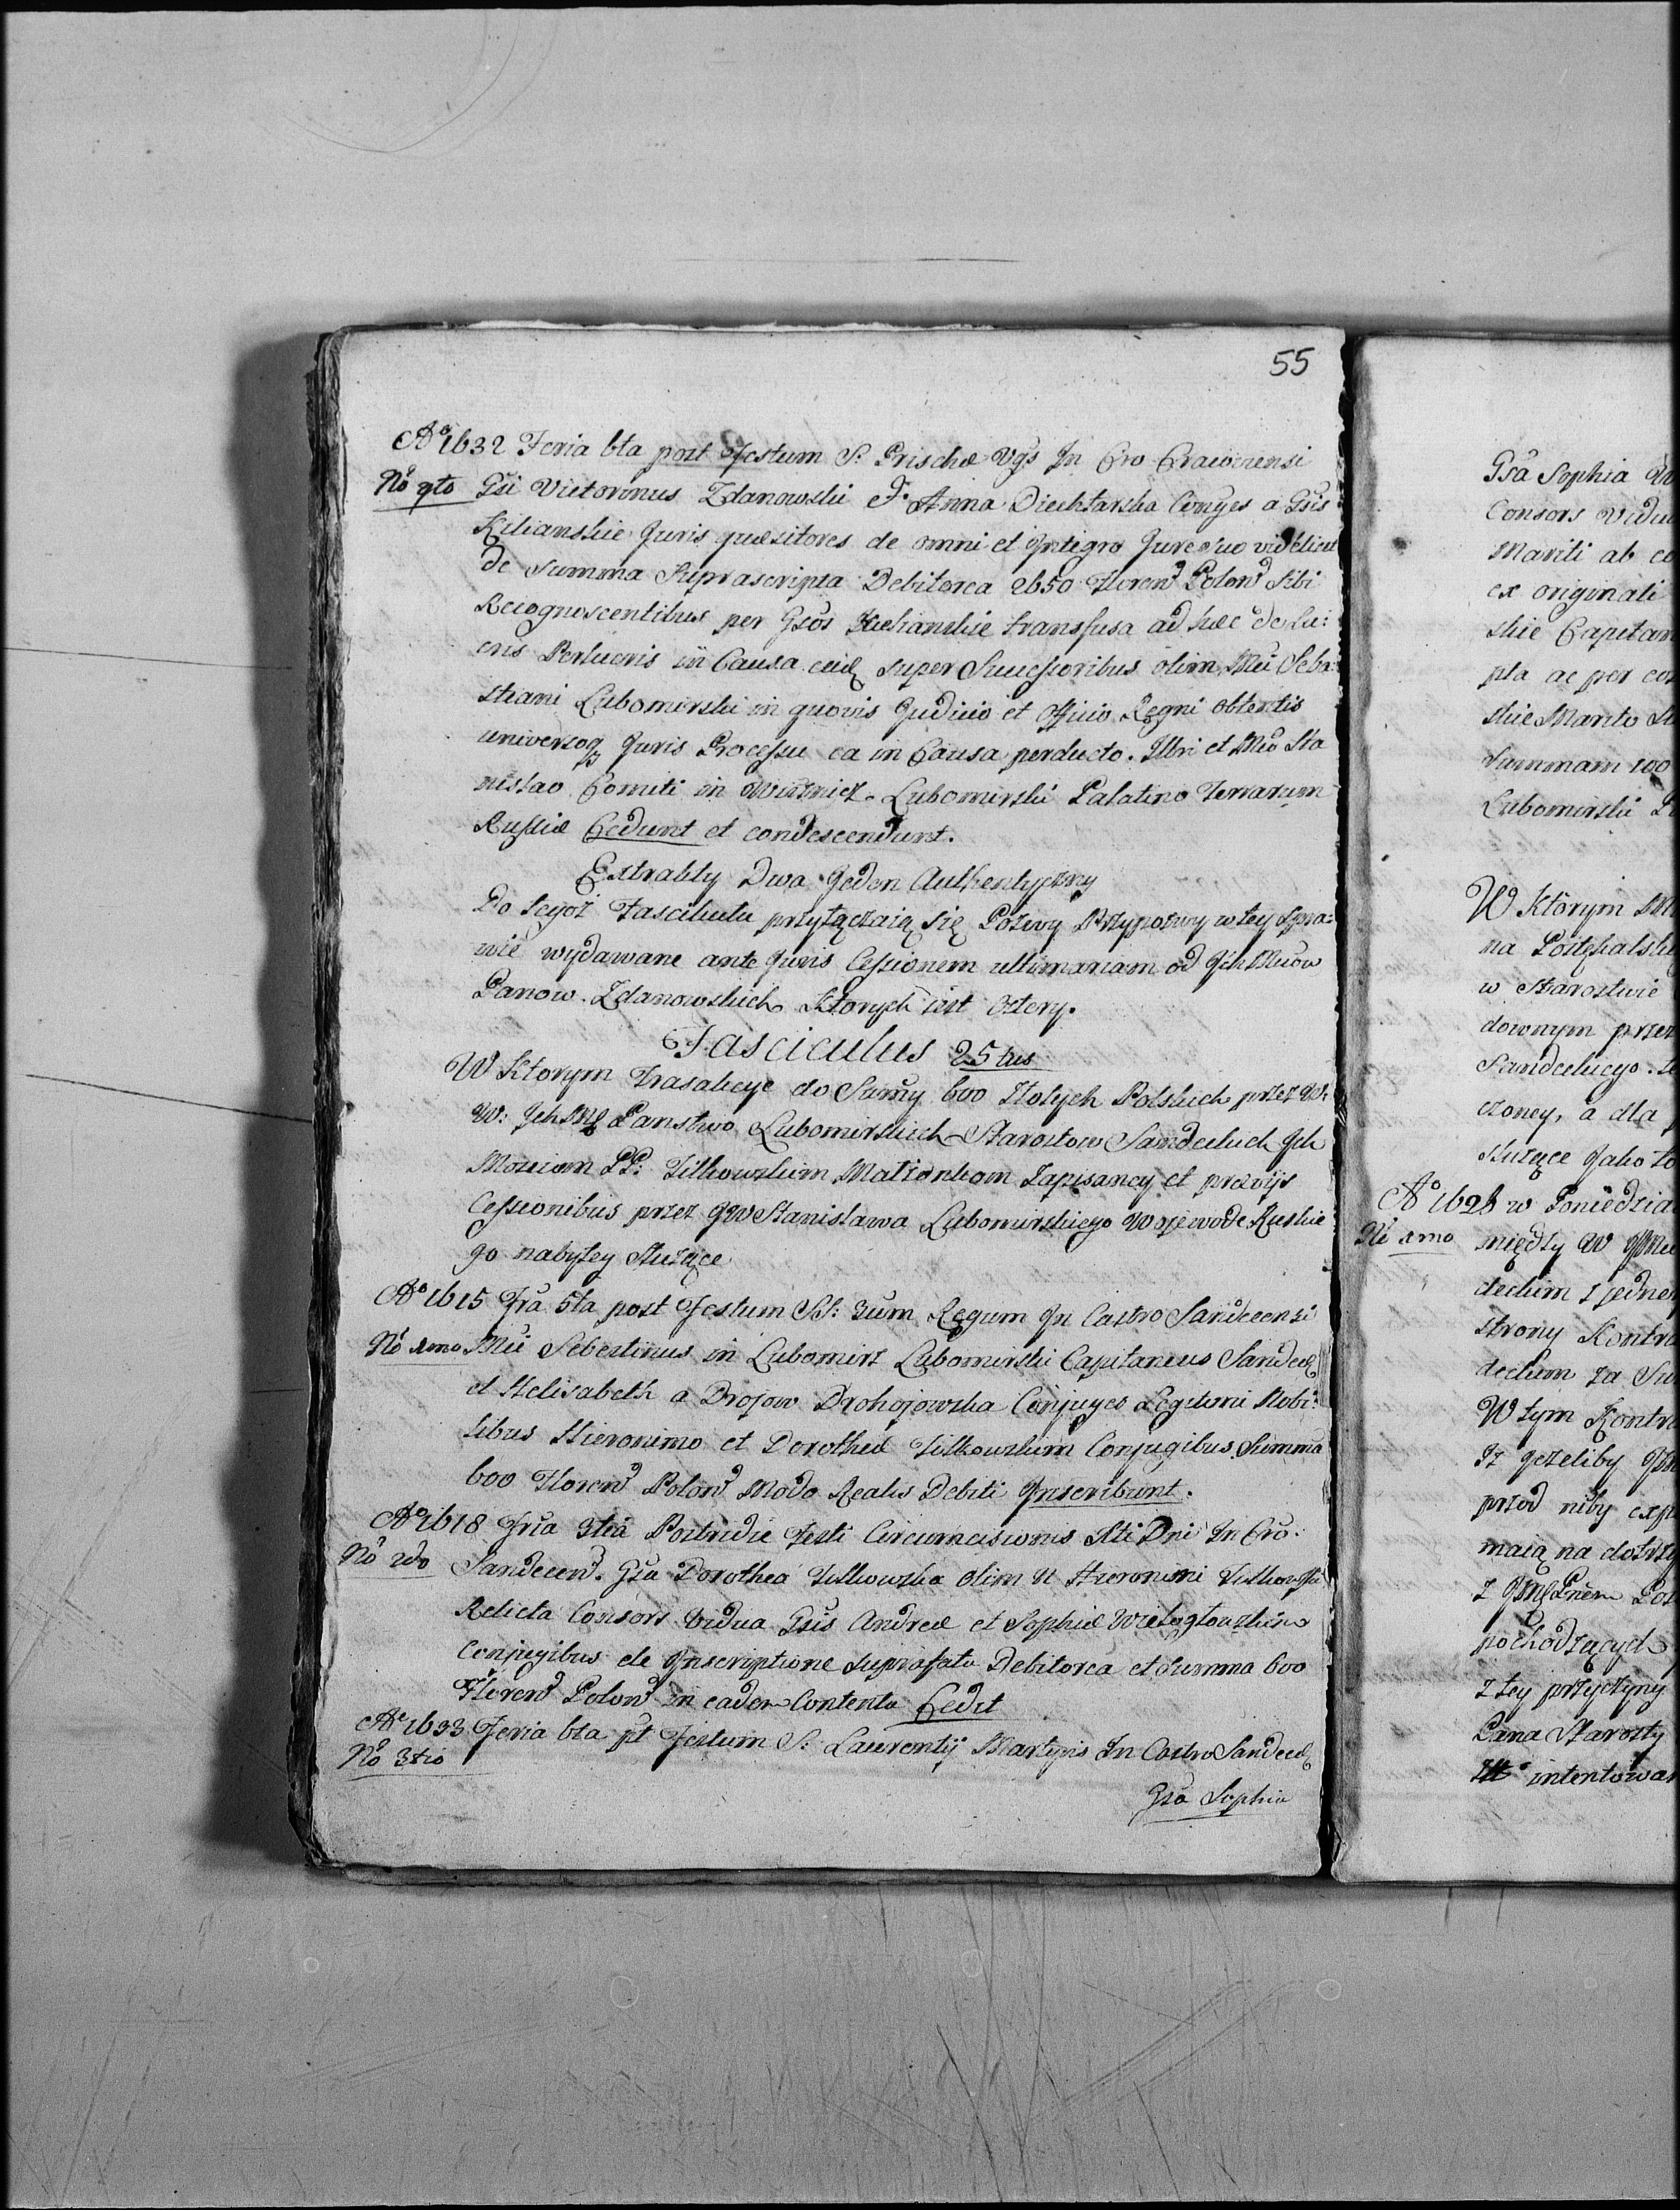 55
Aº 1632 Feria 6ta post Festum S. Prischæ Vgs In Cro Cracoviensi
Nº 4to Gsi Victorinus Zdanowski & Anna Diechtarska Conuges a Gsis
Kilianskie Juris quæsitores de omni et Integro Jure suo videlicet
de Summa Suprascripta Debitorea 2650 Floren Polon Sibi
Recognoscentibus per Gsos Kielianskie transfusa ad hæc de Lu:
cris Perlucris in Causa super Sucessoribus olim Mci Seba:
stiani Lubomirski in quovis Judicio et Officio Regni obtentis
universoq Juris Processu ea in Causa perducto. Illri et Mco Sta
nislao Comiti in Wisznicz Lubomirski Palatino Terrarum
Russiæ Cedunt et condescendunt.
Extrakty Dwa Jeden Authentyczny
Do tegoż Fascikułu przyłączaią się Pozwy Przypozwy w tey spra:
wie wydawane ante Juris Cessionem ultimariam od Ich Mciów
Panow Zdanowskich Ktorych iest cztery.
Fasciculus 25tus
W Ktorym Trasakcye do Sumy 600 Złotych Polskich przez W:
W: Ich Panstwo Lubomirskich Starostow Sandeckich Ich
Mosciom PP: Titkowskim Małżonkom Zapisaney et prævijs
Cessionibus przez JW Stanisława Lubomirskiego Wojewode Ruskie
go nabytey Służące
Aº 1615 Fra 5ta post Festum SS: 3um Regum In Castro Sandecensi
Nº 1mo Mci Sebestinus in Lubomirz Lubomirski Capitaneus Sandec
et Helisabeth a Drojow Drohojowska Conjuges Legitimi Nobi:
libus Hieronimo et Dorotheæ Titkowskim Conjugibus Summa
600 Floren Polon Modo Realis Debiti Inscribunt.
Aº 1618 Fria 3tia Postridie Festi Circumcisionis Dni In Cro.
Nº 2do Sandecen. Gsa Dorothea Titkowska olim N Hieronimi
Relicta Consors Vidua Gsis Andreæ et Sophiæ Wielogłowskim
Conjugibus de Inscriptione suprafata Debitorea et summa 600
Floren Polon in eadem Contenta Cedit
Aº 1633 Feria 6ta pt Festum S. Laurentij Martyris In Castro Sandec
Nº 3tio
Gsa Sophia
Gsa Sophia
Consors Vidu
Mariti ab
ex originali
skie Capitan
pta ac per
skie Marito
Summam 100
Lubomirski
W Ktòrym
na
w Starostwie
downym przez
Sandeckiego.
czoney, a dla
Służące Jako to
Aº 1628 w Poniedzia
Nº 1mo między W
deckim z jedne
strony Kontr
deckim za Su
W tym Kontr
Iż jezeliby
przod niby
maią na
z
pochodzących
z tey przyczyny
Pana Starosty
intentowan